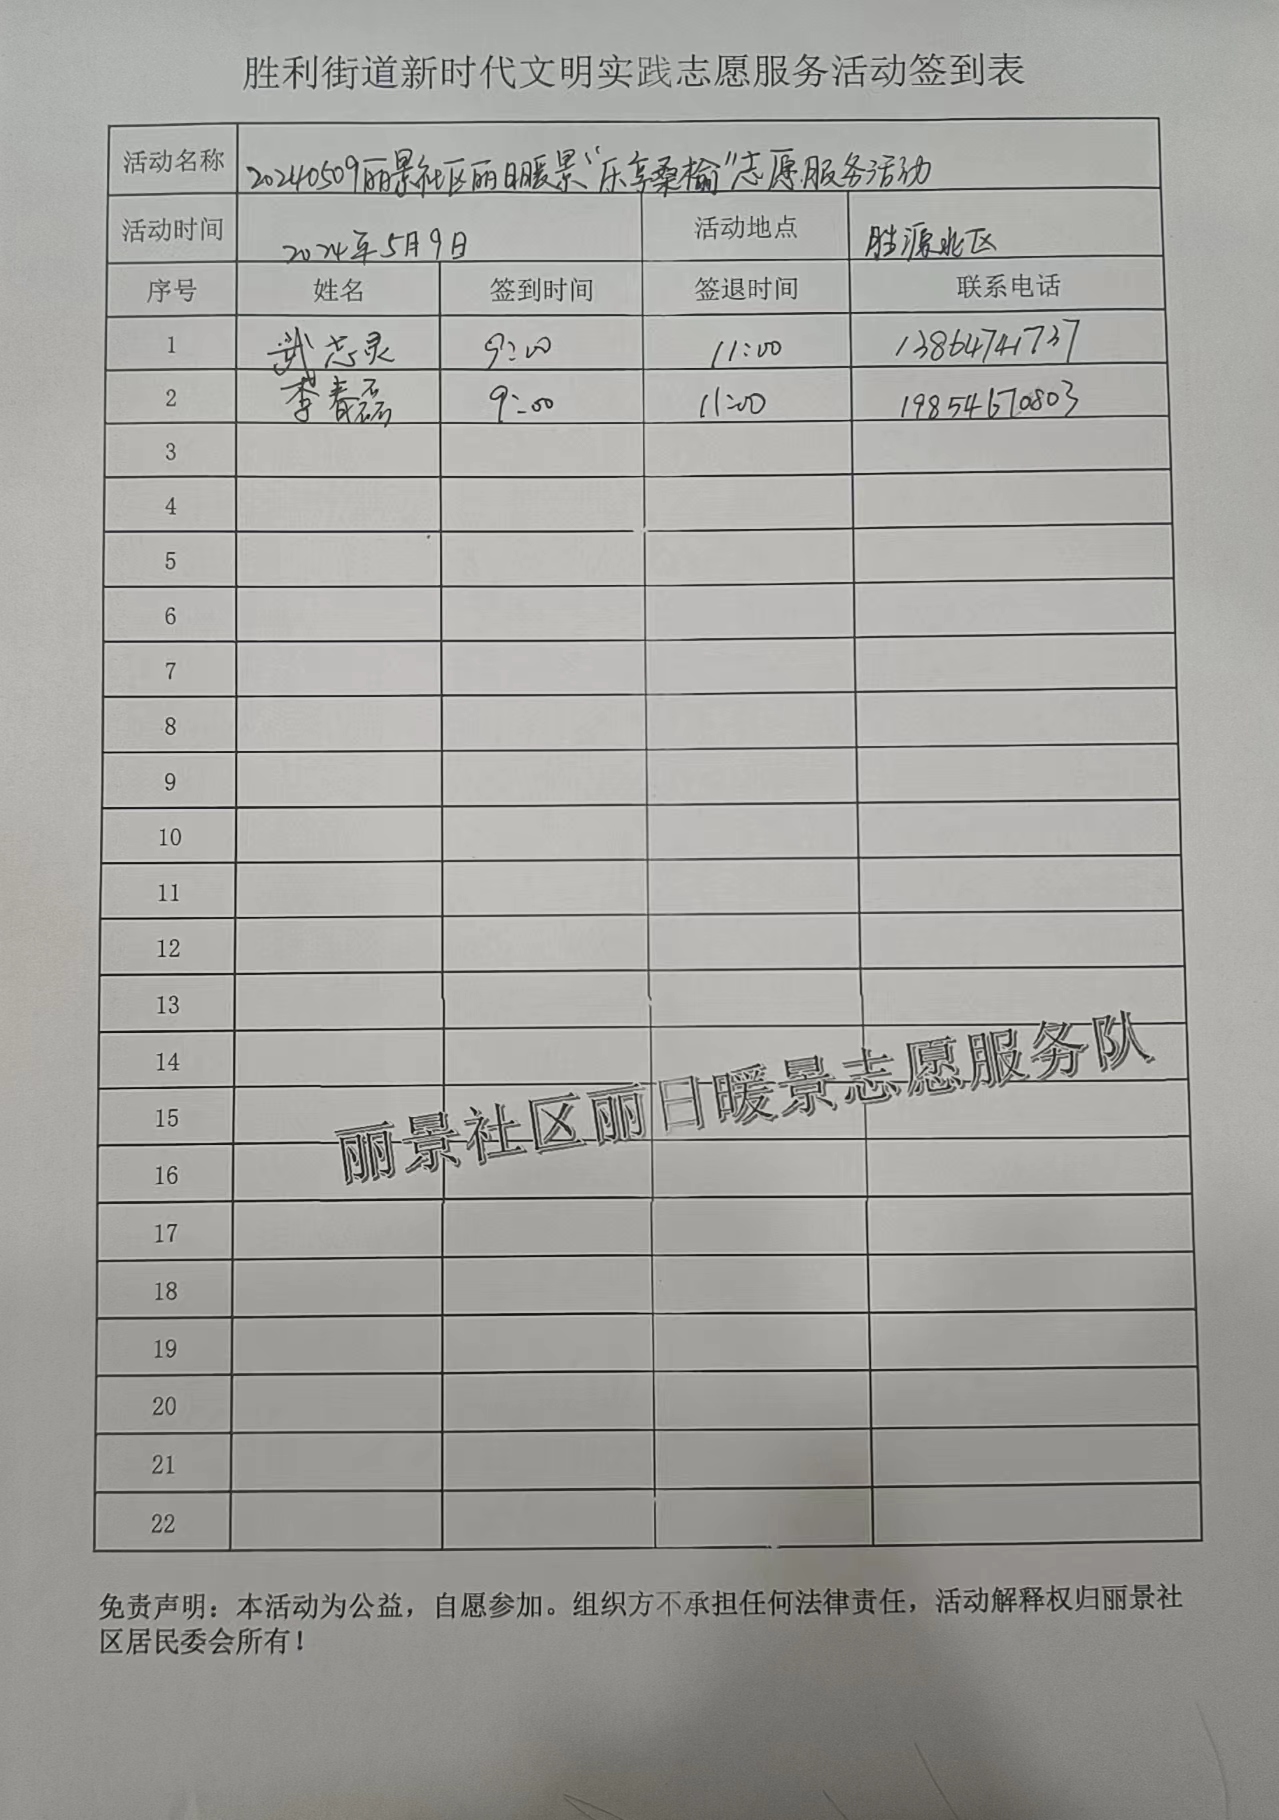 胜利街道新时代文明实践志愿服务活动签到表
活动名称 20240509丽景社区丽日暖景“乐享桑榆”志愿服务活动
活动时间 2024年5月9日 活动地点 胜源北区
序号 姓名 签到时间 签退时间 联系电话
1 武志灵 9:00 11:00 13864741737
2 李春磊 9:00 11:00 19854670803
3
4
5
6
7
8
9
10
11
12
13
14
15
16
17
18
19
20
21
22
丽景社区丽日暖景志愿服务队
免责声明：本活动为公益，自愿参加。组织方不承担任何法律责任，活动解释权归丽景社
区居民委会所有！